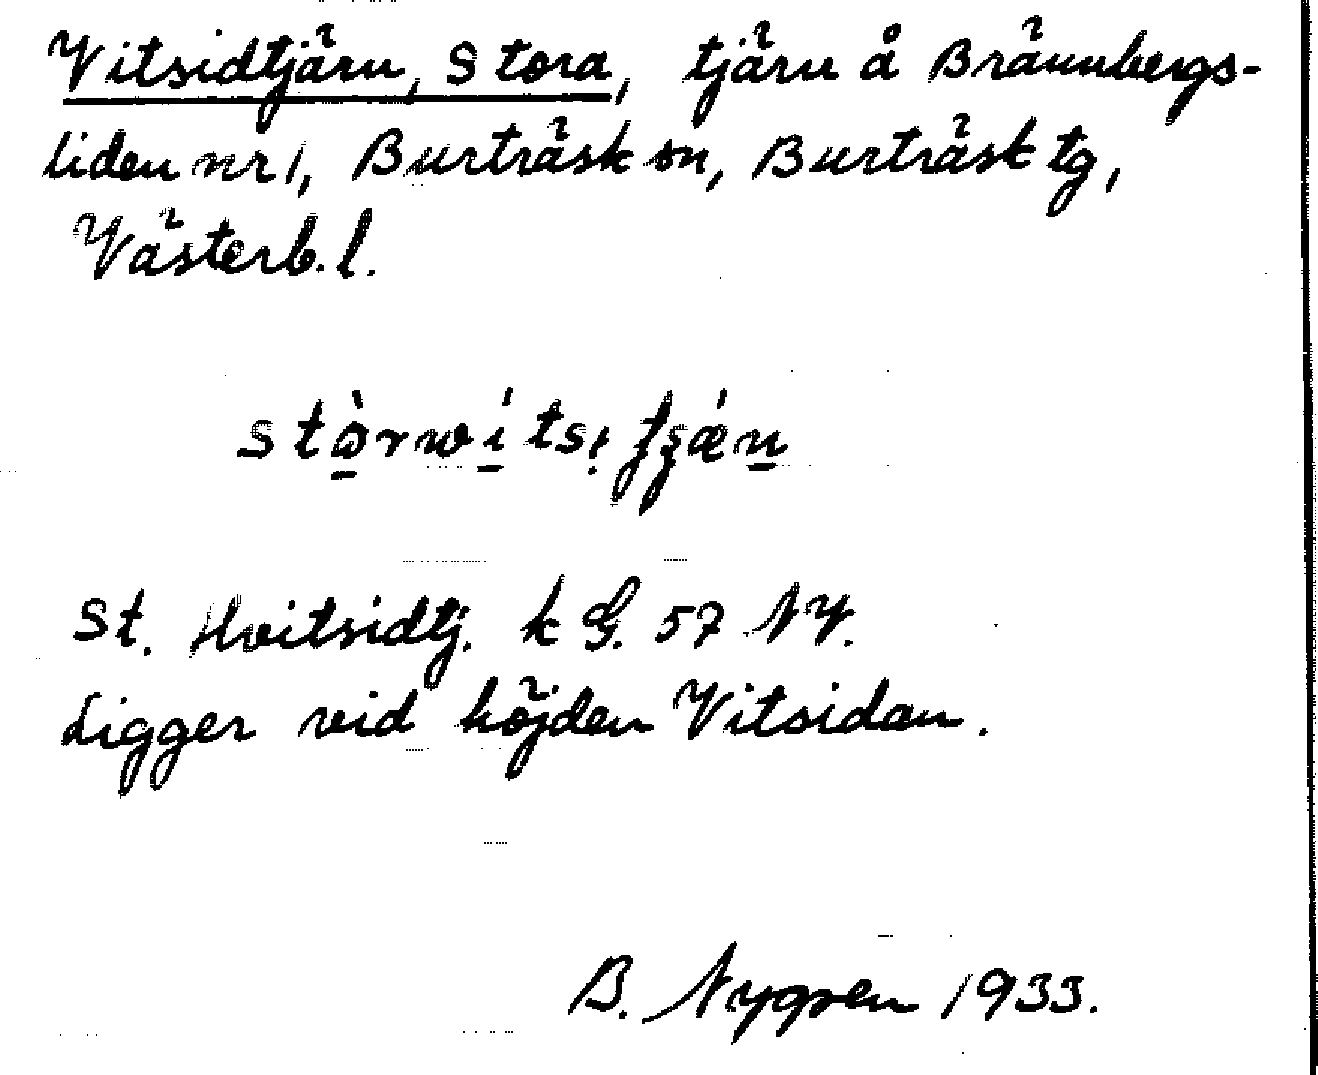 Vitsidtjärn, Stora, tjärn å Brännbergs-
liden nr 1, Burträsk sn, Burträsk tg,
Västerb. l.
St. Hvitsidtj. k G. 57 NV.
Ligger vid höjden Vitsidan.
B. Nygren 1933.